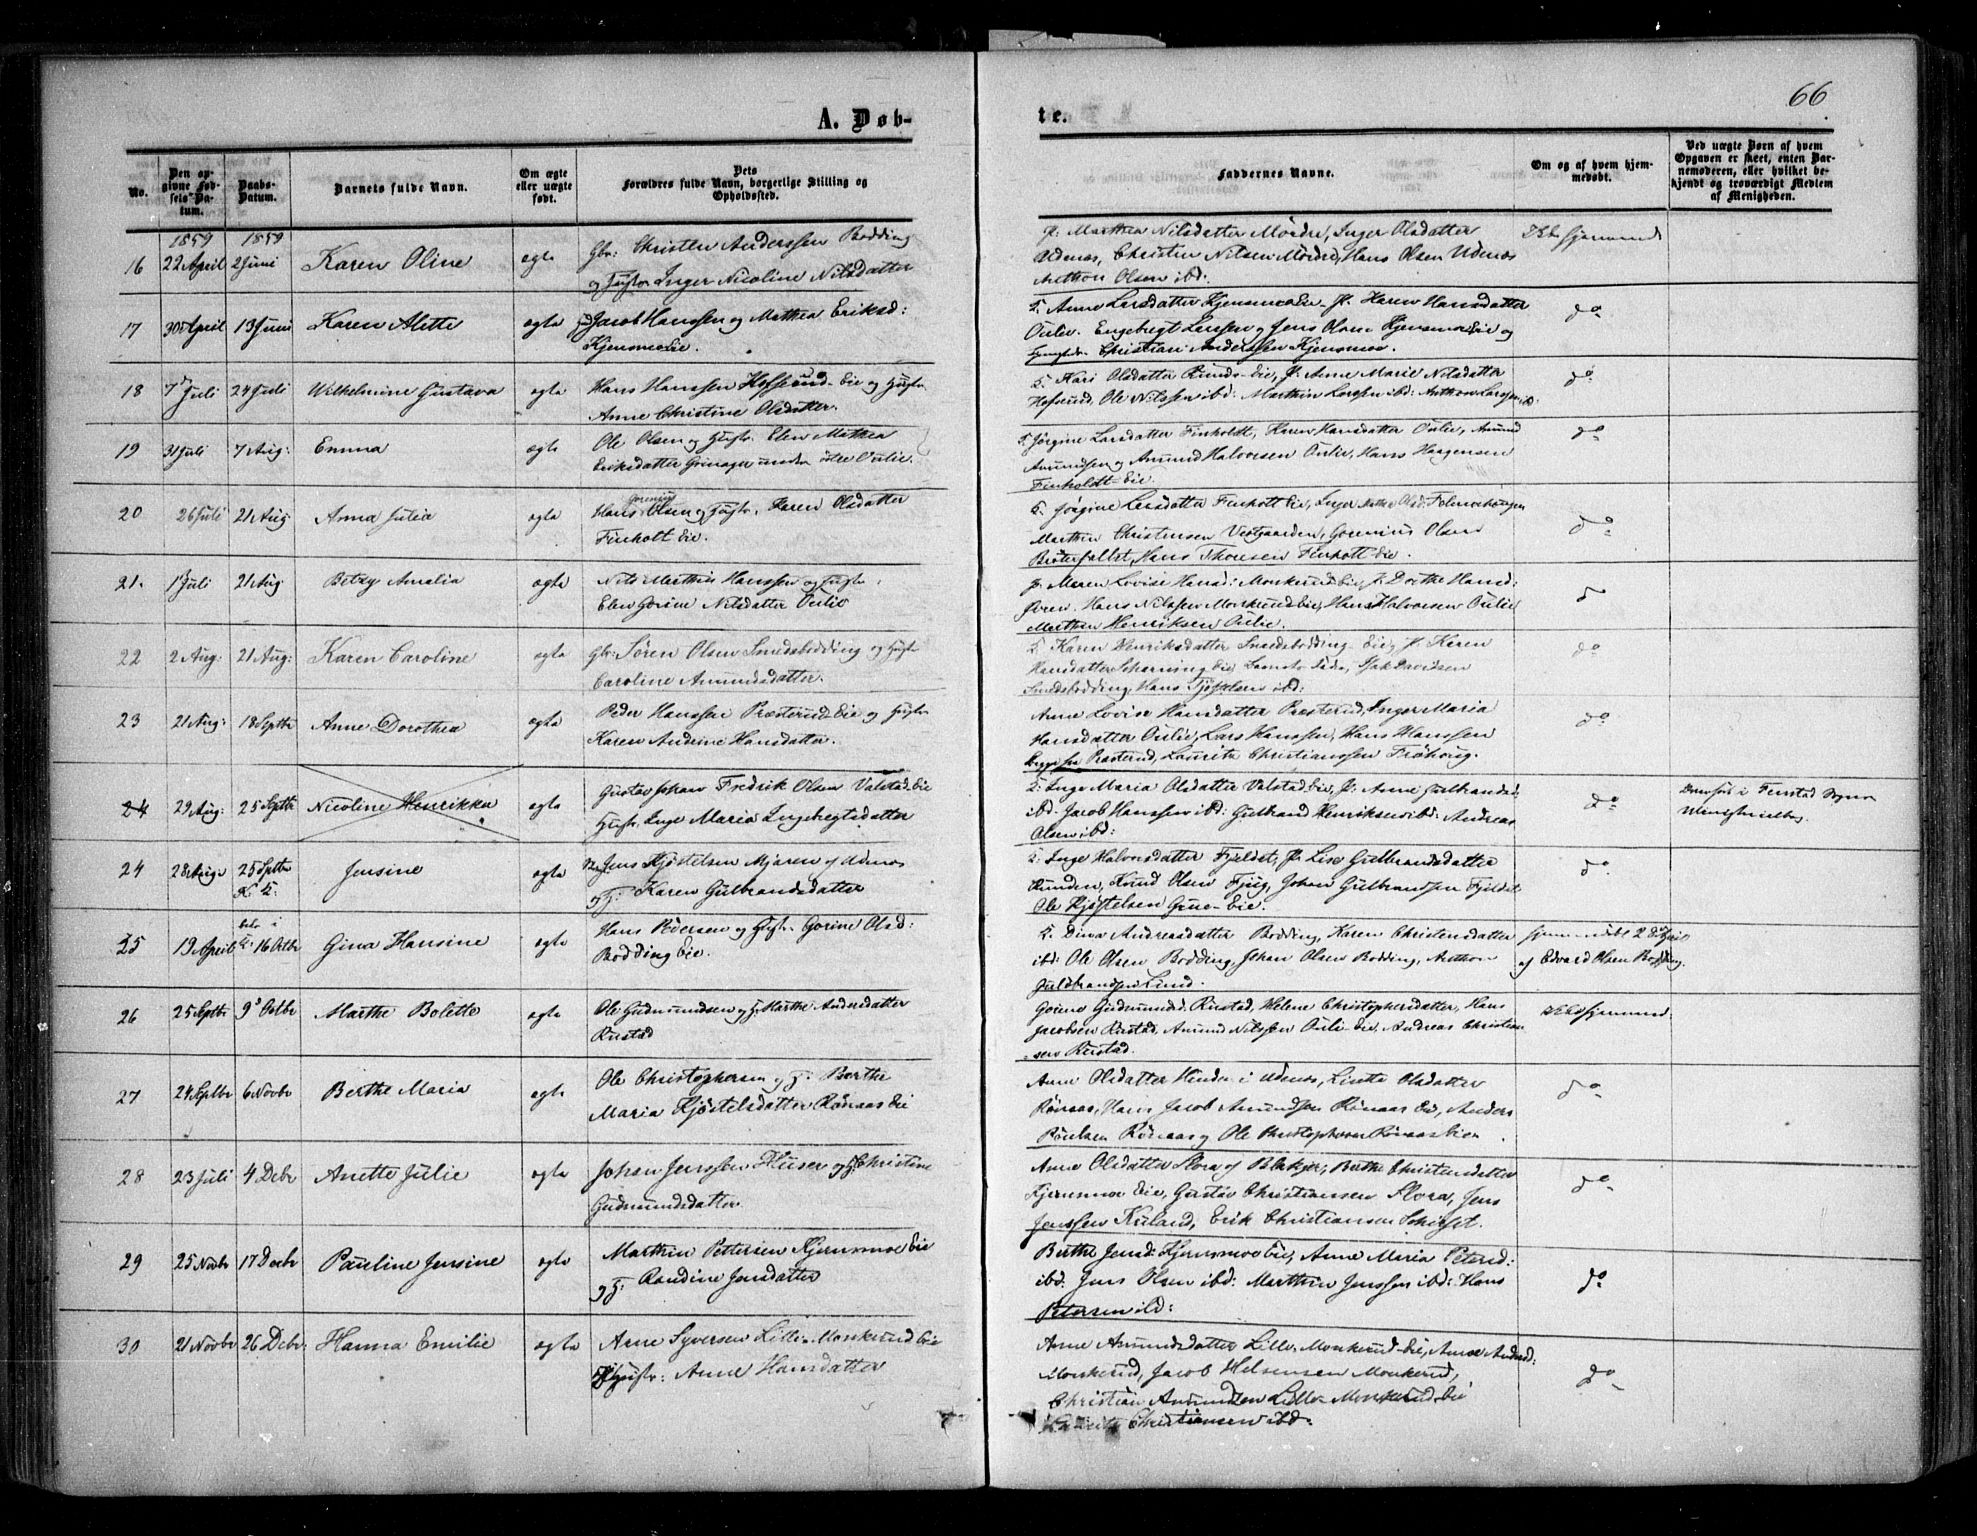 66
A. Døb-
te.
No.
Den op-
givne Fød-
sels-Da-
tum.
Daabs-
Datum.
Barnets fulde Navn.
Om ægte
eller uægte
født.
Dets
Forældres fulde Navn, borgerlige Stilling og
Opholdssted.
Faddernes Navne.
Om og af hvem hjem-
medøbt.
Ved uægte Børn af hvem
Opgaven er skeet, enten Bar-
nemoderen, eller hvilket be-
kjendt og troværdigt Medlem
af Menigheden.
1859 1859
16 22 April 2 Juni Karen Oline ægte
Gbr: Christen Anderssen Bødding
og Hustr. Inger Nicoline Nilsdatter
P. Marthea Nilsdatter Mørdre, Inger Olsdatter
Udenæs, Christen Nilsen Mørdre, Hans Olsen Udenæs
Anthon Olsen ibd:
17 30 April 13 Juni Karen Alette ægte
Jacob Hanssen og Mathea Eriksd:
Kjensmoeie.
K. Anne Larsdatter Kjensmoeie, P. Karen Hansdatter
Oulie, Engebregt Larssen og Jens Olsen Kjensmoeie og
Christian Anderssen Kjensmoe.
do
18 7 Juli 24 Juli Wilhelmine Gustava ægte
Hans Hanssen Hofsrud-Eie og Hustr.
Anne Christine Olsdatter.
K. Kari Olsdatter Runds-Eie, P. Anne Marie Nilsdatter
Hofsrud, Ole Nilssen ibd: Marthin Larssen ibd: Anthon Larssen ib.
do
19 31 Juli 7 Aug: Emma ægte
Ole Olsen og Hustr. Elen Mathea
Eriksdatter Grinager under østre Oulie.
K. Jørgine Larsdatter Finholdt, Karen Hansdatter Oulie, Amund
Amundsen og Amund Halvorsen Oulie, Hans Haagensen
Finholdt-Eie.
do
20 26 Juli 21 Aug: Anna Julia ægte
Gorenius
Hans Olsen og Hustr. Karen Olsdatter
Finholt Eie.
K. Jørgine Larsdatter Finholt Eie, Inger Olsd:
Marthin Christensen Vestgaarden, Gorenius Olsen
Braterfallet, Hans Thoresen Finholt Eie.
do
21. 1 Juli 21 Aug Betzy Amalia ægte
Nils Mathis Hanssen og Hustr.
Elen Gorine Nilsdatter Oulie
P. Maren Lovise Hansd: Monkerud Eie, P. Dorthe Hansd:
Hans Nilssen Monkerud Eie, Hans Halvorsen Oulie,
Marthin Henriksen Oulie.
do
22 2 Aug: 21 Aug: Karen Caroline ægte
Gbr: Søren Olsen Smedsbødding og Hustr
Caroline Amundsdatter.
K. Karen Henriksdatter Smedsbødding Eie, P. Karen
Hansdatter Scherning Eie,
Smedsbødding, Hans ibd:
do
23 21 Aug: 18 Septbr Anne Dorothea ægte
Peder Hanssen Præsterud-Eie og Hustr.
Karen Andrine Hansdatter.
Anne Lovise Hansdatter Præsterud, Inger Maria
Hansdatter Oulie, Lars Hanssen, Hans Hanssen
begge fra Præsterud, Laurits Christianssen Frøhaug.
do
24 29 Aug: 25 Septbr Nicoline Henrikke ægte
Gustav Johan Fredrik Olsen Valstad-Eie
Hustr. Inge Maria Ingebregtsdatter
K. Inge Maria Olsdatter Valstad Eie, P. Anne Gulbrandsd:
ibd: Jacob Hanssen ibd: Gulbrand Henriksen ibd: Andreas
Olsen ibd:
do
i Fenstad Sogns
24 28 Aug: 25 Sptbr Jensine ægte
K. K.
Jens Kjøstelsen Mjaren af Udenæs
og H: Karen Gulbrandsdatter
K: Inge Halvorsdatter Fjeldet, P. Lise Gulbrandsdatter
Runden, Knud Olsen Fjug, Johan Gulbrandsen Fjeldet
Ole Kjøstelsen Grue-Eie.
do
25 19 April 16 Octbr Gina Hansine ægte
Hans Pedersen og Hustr. Gorine Olsd:
Bødding Eie.
K. Dina Andreasdatter Bødding, Karen Christensdatter
ibd: Ole Olsen Bødding, Johan Olsen Bødding, Anthon
Guldbrandsen Lund.
hjemmedøbt 2 April
af Edvard Olsen Bødding.
26 25 Septbr 9 Octbr Marthe Bolette ægte
Ole Gudmundsen og H. Marthe Andersdatter
Rustad
Gorine Gudmundsd. Rustad, Helene Christophersdatter, Hans
Jacobsen Rustad, Amund Nilssen Oulie-Eie, Andreas Christian
sen Rustad.
27 24 Septbr 6 Novbr Berthe Maria ægte
Ole Christophersen og H: Berthe
Maria Kjøstelsdatter Rønaas Eie
Anne Olsdatter Henden i Udenæs, Lisette Olsdatter
Rønaas, Hans Jacob Amundsen Rønaas Eie, Anders
Poulsen Rønaas og Ole Christophersen Rønaas Eie.
do
28 23 Juli 4 Decbr Anette Julie ægte
Johan Jenssen Huser og H. Christine
Gudmundsdatter.
Anne Olsdatter Flora af Blakjer, Berthe Christensdatter
Kjensmoe Eie, Gustav Christianssen Flora, Jens
Jenssen Kuland, Erik Christiansen
do
29 25 Novbr 17 Decbr Pauline Jensine ægte
Marthin Pettersen Kjernsmoe Eie
og H: Randine Jensdatter
Berthe Jensd: Kjernsmoe Eie, Anne Maria Petersd:
ibd. Jens Olsen ibd: Marthin Jenssen ibd: Hans
Petersen ibd:
do
30 21 Novbr 26 Decbr: Hanna Emilie ægte
Arne Syversen Lille-Monkerud Eie
Hustr: Anne Hansdatter
Anne Amundsdatter Lille-Monkerud-Eie, Anne Andersd:
Monkerud, Jacob Helgesen Monkerud,
Christian Amundsen Lille-Monkerud Eie
Laurits Christiansen ibd:
do